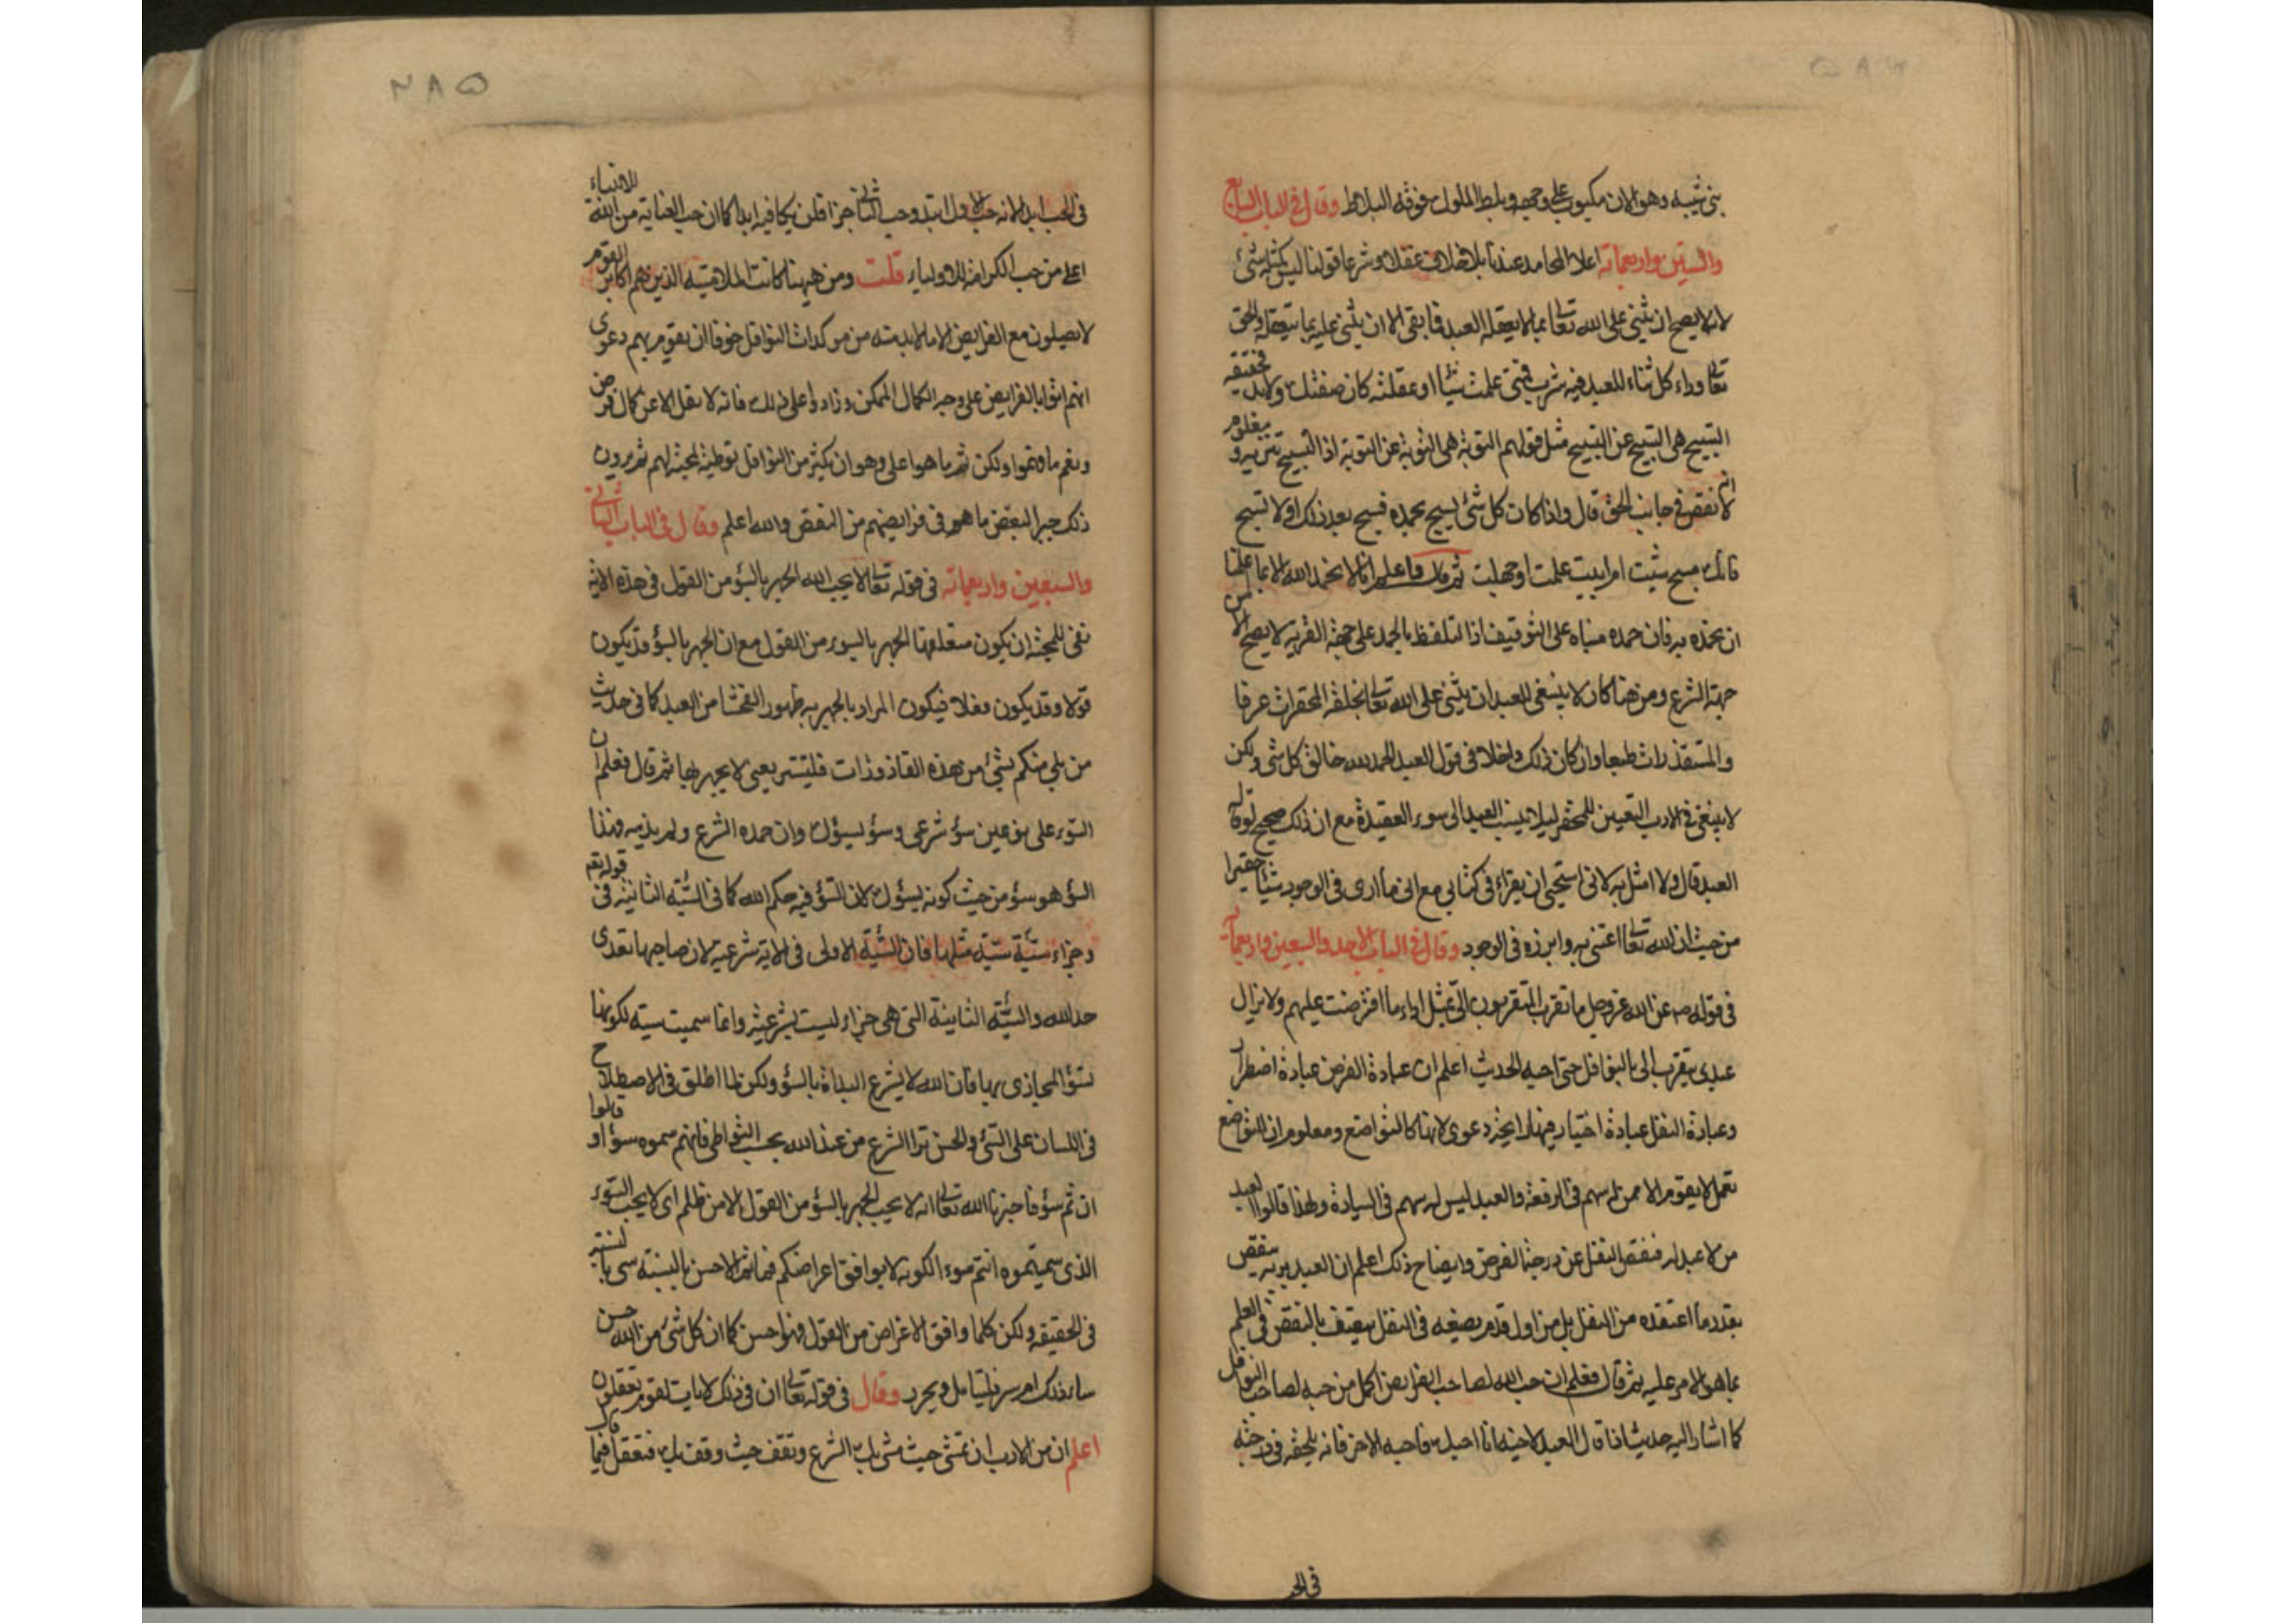 بنى شيبه وهو الان مكبوب على وجهه وبلط الملوك فوقه البلاط وقال فى الباب السابع
والستين واربعمائة اعلا المحامد عندنا بلا خلاف عقلا وشرعا قولنا ليس كمثله شئ
لانه لا يصح ان يثنى على الله تعالى بما لا يعقله العبد فما بقى الا ان يثنى عليه بما يتعقله والحق
تعالى وراء كل ثناء للعبد فيه شرب فمتى علمت شيئا او عقلته كان صفتك ولابد فحقيقة
التسبيح هى التسبيح عن التسبيح مثل قولهم التوبة هى التوبة عن التوبة اذ التسبيح تنزيه ومعلوم
انه لا نقص فى جانب الحق قال واذا كان كل شئ يسبح بحمده فسبح بعد ذلك او لا تسبح
فانك مسبح شئت ام ابيت علمت او جهلت ثم قال فاعلم انا لا نحمد الله الا بما علمنا
ان نحمده به فان حمده مبناه على التوقيف اذ التلفظ بالحمد على جهة القربه لا يصح الا من
جهة الشرع ومن هنا كان لا ينبغى للعبد ان يثنى على الله تعالى بخلقه المحقرات عرفا
والمستقذرات طبعا وان كان ذلك داخلا فى قول العبد الحمد لله خالق كل شئ ولكن
لا ينبغى فى الادب التعيين للمحقر ليلا ينسب العبد الى سوء العقيدة مع ان ذلك صحيح لو قاله
العبد قال ولا امثل به لانى استحيى ان يقراء فى كتابى مع انى ما ارى فى الوجود شيئا حقيرا
من حيث ان الله تعالى اعتنى به وابرزه فى الوجود وقال فى الباب الاحد والسبعين واربعمائه
فى قوله صم عن الله عز وجل ما تقرب المتقربون الى بمثل اداء ما افترضت عليهم ولا يزال
عبدى يتقرب الى بالنوافل حتى احبه الحديث اعلم ان عبادة الفرض عبادة اضطرار
وعبادة النفل عبادة اختيار فيها رايحة دعوى لانها كالتواضع ومعلوم ان التواضع
تعمل لا يقوم الا ممن له سهم فى الرفعة والعبد ليس له سهم فى السيادة ولهذا قالوا العبد
من لا عبد له فنقص النفل عن درجة الفرض وايضاح ذلك اعلم ان العبد بربه ينقص
بقدر ما اعتقده من النفل بل من اول قدم يضعه فى النفل يتصف بالنقص فى العلم
بما هو الامر عليه ثم قال فعلم ان حب الله لصاحب الفرايض اكمل من حبه لصاحب النوافل
كما اشار اليه حديث اذا قال العبد لاخيه انا احبك فاحبه الاخر فانه لا يلحقه فى درجته
فى الحب
فى الحب ابدا لانه حب الاول ابتداء وحب الثانى جزاء فلن يكافيه ابدا كما ان حب العناية من الله للانبياء
اعلى من حب الكرامة للاولياء قلت ومن هيهنا كانت الملامتيه الذين هم اكابر القوم
لا يصلون مع الفرايض الا ما لا بد منه من مؤكدات النوافل خوفا ان يقوم بهم دعوى
انهم اتوا بالفرايض على وجه الكمال الممكن وزادوا على ذلك فانه لا نفل الا عن كمال فرض
ونعم ما فهموا ولكن ثم ما هو اعلى وهو ان يكثر من النوافل توطية لمحبة لهم ثم يرون
ذلك جبرا لبعض ما هو فى فرايضهم من النقص والله اعلم وقال فى الباب الثانى
والسبعين واربعمائه فى قوله تعالى لا يحب الله الجهر بالسؤ من القول فى هذه الاية
نفى المحبة ان يكون متعلقها الجهر بالسوء من القول مع ان الجهر بالسؤ قد يكون
قولا وقد يكون فعلا فيكون المراد بالجهر به ظهور الفحشا من العبد كما فى حديث
من بلى منكم بشئ من هذه القاذورات فليستتر يعنى لا يجهر بها ثم قال فعلم ان
السوء على نوعين سؤ شرعى وسؤ يسؤك وان حمده الشرع ولم يذمه فهذا
السؤ هو سؤ من حيث كونه يسؤك لان السؤ فيه حكم الله كما فى السيئة الثانيه فى قوله تعم
وجزاء سيئة سيئة مثلها فان السيئة الاولى فى الاية شرعية لان صاحبها تعدى
حد الله والسيئة الثانية التى هى جزاء ليست بشرعية وانما سميت سيئة لكونها
تسؤ المجازى بها فان الله لا يشرع البداة بالسؤ ولكن لما اطلق فى الاصطلاح
فى اللسان على السئ والحسن نزل الشرع من عند الله بحسب التواطى فانهم سموه سؤا وقالوا
ان ثم سؤ فاخبرنا الله تعالى انه لا يحب الجهر بالسؤ من القول الا من ظلم اى لا يحب السوء
الذى سميتموه انتم سوء الكونه لا يوافق اغراضكم فما ثم الاحسن بالنسبة سئ بالنسبة
فى الحقيقه ولكن كلما وافق الاغراض من القول فهو احسن كما ان كل شئ من الله حسن
ساء ذلك ام سر فليتامل ويحرر وقال فى قوله تعالى ان فى ذلك لايات لقوم يعقلون
اعلم ان من الادب ان تمشى حيث مشى بك الشرع وتقف حيث وقف بك فتعقل فيما قال